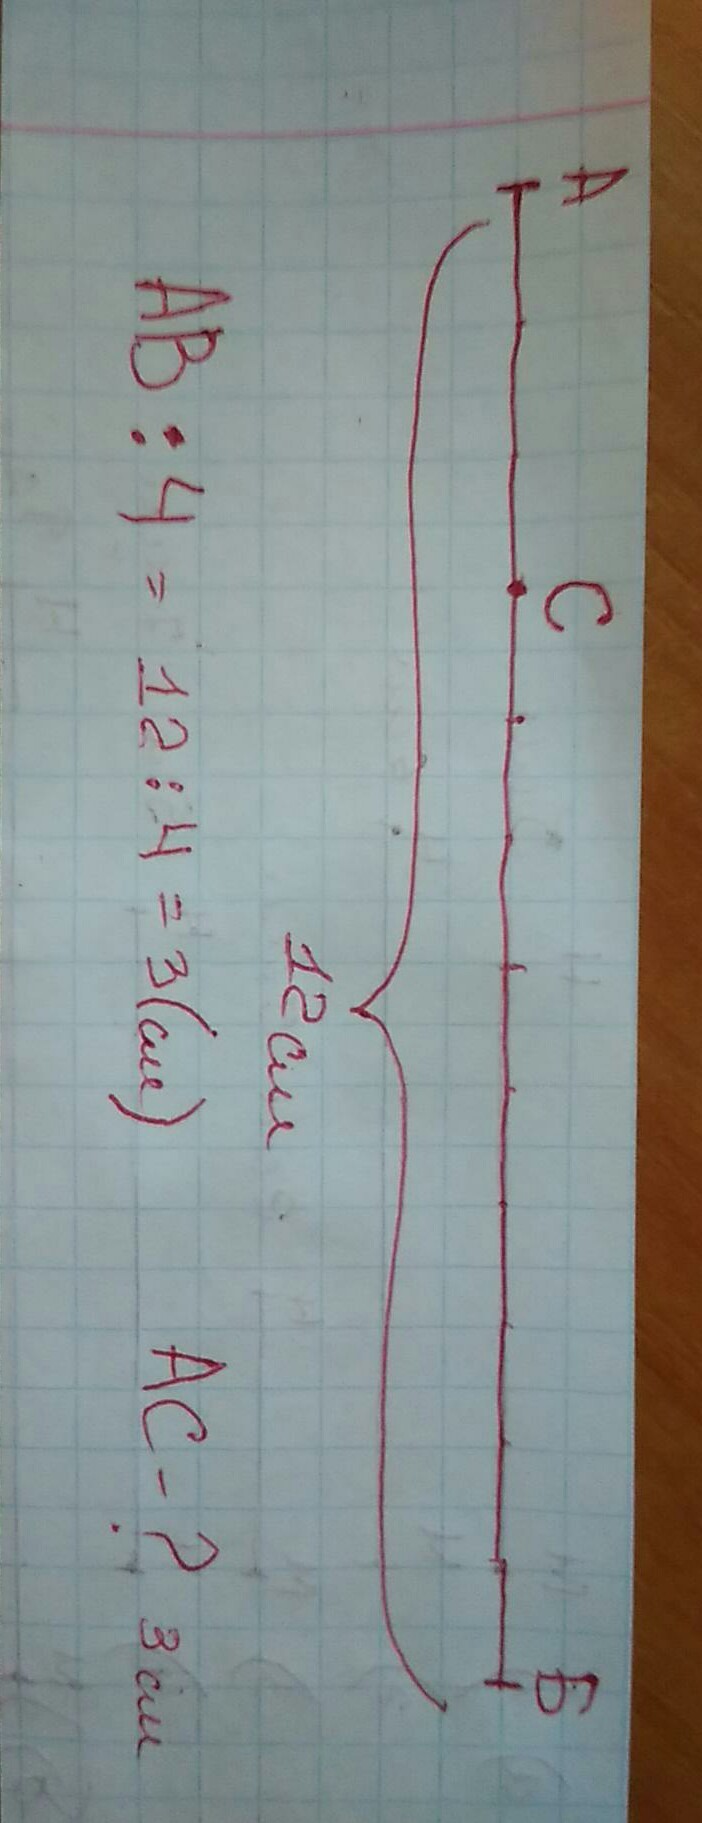 А С Б
12 см
АВ : 4 = 12 : 4 = 3 (см) АС - ? 3 см